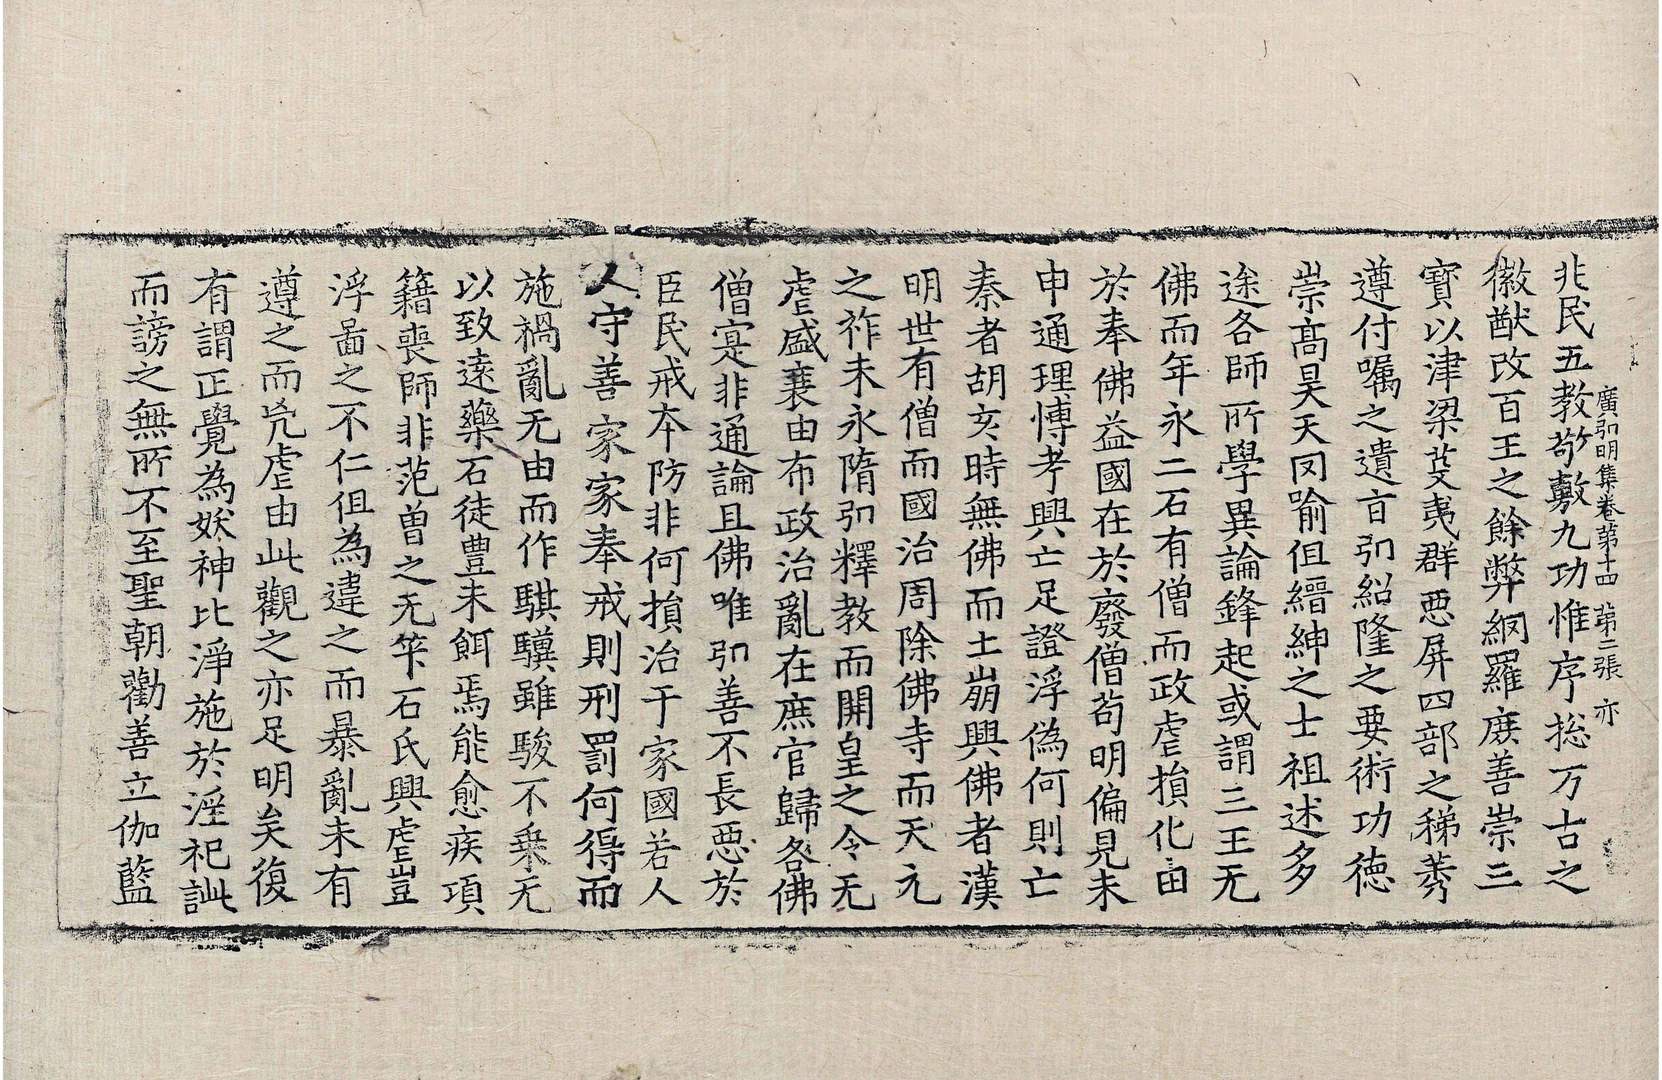 廣弘明集卷第十四　第二張　亦
兆民五教敬敷九功惟序捴万古之
徽猷改百王之餘弊網羅庶善崇三
寶以津梁芟夷群惡屏四部之稊莠
遵付囑之遺言弘紹隆之要術功德
崇高昊天罔喻但縉紳之士祖述多
途各師所學異論鋒起或謂三王无
佛而年永二石有僧而政虐損化由
於奉佛益國在於廢僧苟明偏見未
申通理博考興亡足證浮偽何則亡
秦者胡亥時無佛而土崩興佛者漢
明世有僧而國治周除佛寺而天元
之祚未永隋弘釋教而開皇之令无
虐盛衰由布政治亂在庶官歸咎佛
僧寔非通論且佛唯弘善不長惡於
臣民戒本防非何損治于家國若人
人守善家家奉戒則刑罰何得而
施禍亂无由而作騏驥雖駿不乘无
以致遠藥石徒豊未餌焉能愈疾項
籍喪師非范曾之无筭石氏興虐豈
浮啚之不仁但為違之而暴亂未有
遵之而凶虐由此觀之亦足明矣復
有謂正覺為妖神比淨施於淫祀訿
而謗之無所不至聖朝勸善立伽藍